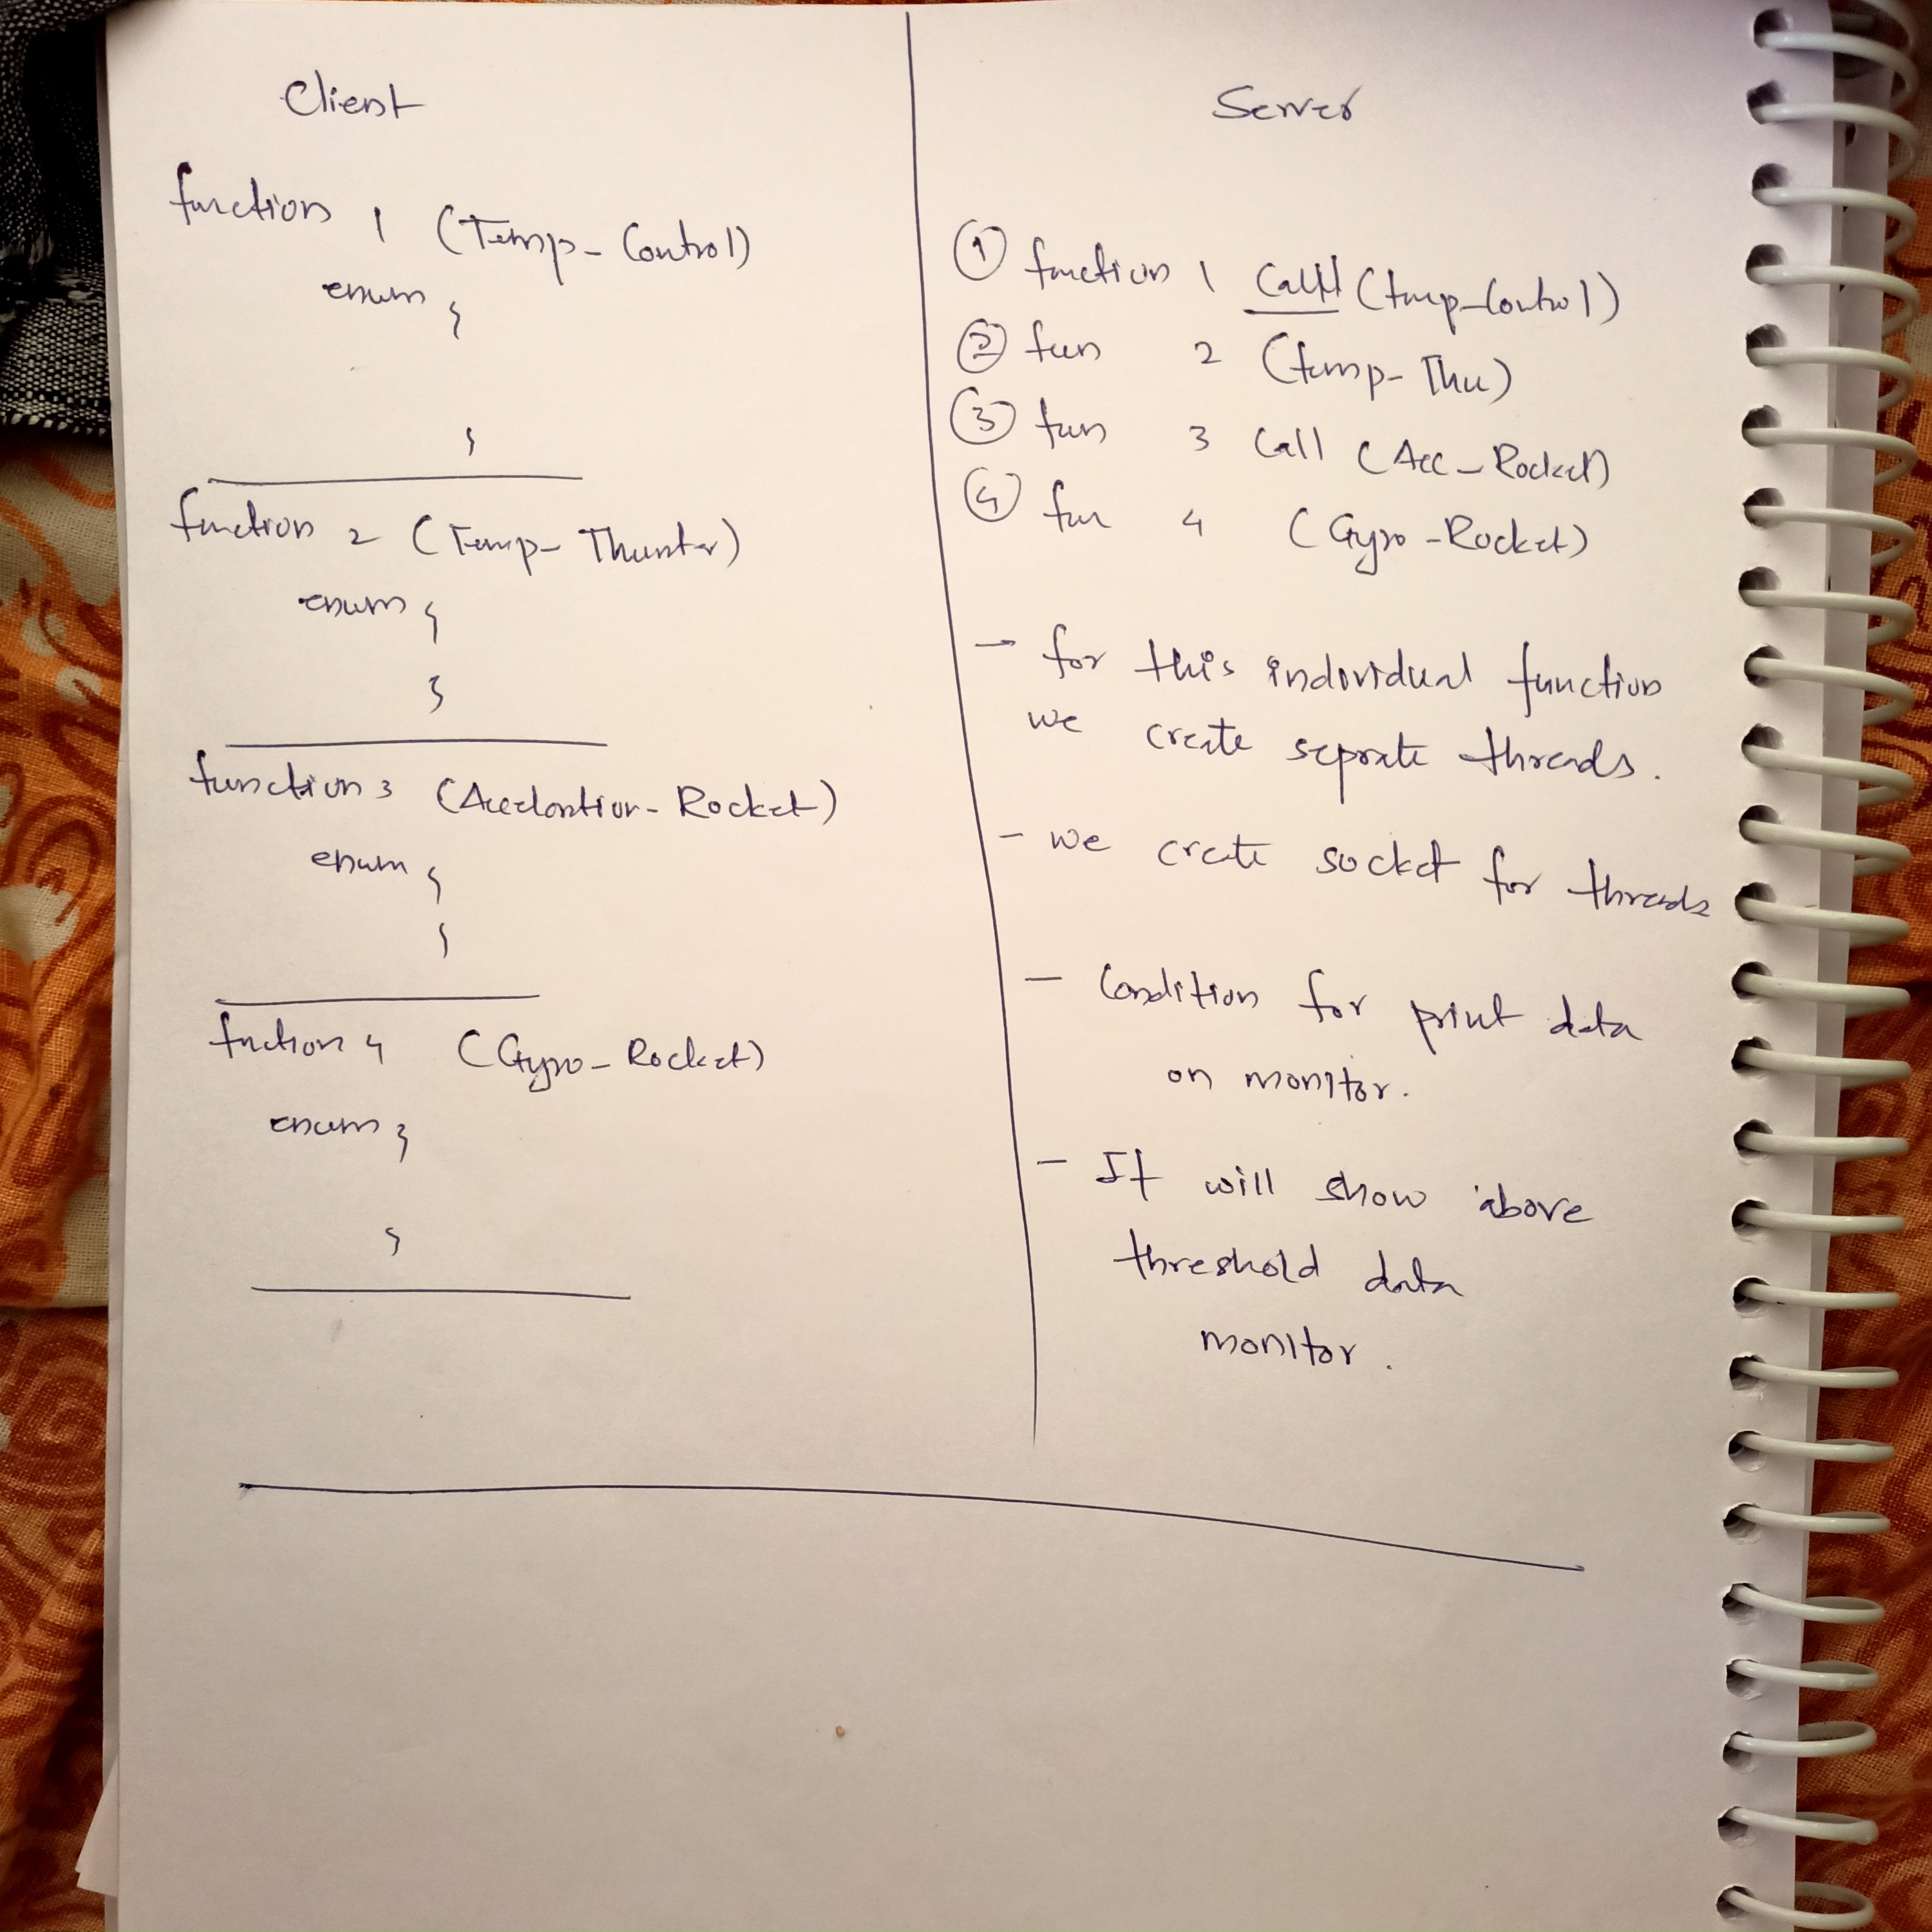 Client
function 1 (Temp-Control)
enum {
}
function 2 (Temp-Thunster)
enum {
}
function 3 (Accelontior-Rocket)
enum {
}
fnction 4 (Gyro-Rocket)
enum {
}
Server
① function 1 Call (temp-Control)
② fun 2 (temp-Thu)
③ fun 3 Call (Acc-Rocket)
④ fun 4 (Gyro-Rocket)
- for this individual function
we create seprate threads.
- we create socket for threads
- Condition for print data
on monitor.
- It will show above
threshold data
monitor.